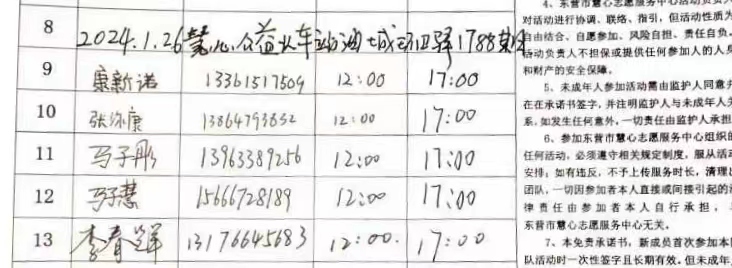 8
2024.1.26慧心公益火车站
9 康新诺 13361517509 12:00 17:00
10 张 康 13864793832 12:00 17:00
11 马子彤 13963389256 12:00 17:00
12 马子慧 15666728189 12:00 17:00
13 李春 13176645683 12:00. 17:00
4、东营市慧心志愿服务中心活动负责人
对活动进行协调、联络、指引，但活动性质为
自由结合、自愿参加、风险自担、责任自负。
活动负责人不担保或提供任何参加人的人身
和财产的安全保障。
5、未成年人参加活动需由监护人同意并
在在承诺书签字，并注明监护人与未成年人关
系。如发生任何意外，一切责任由监护人承担
6、参加东营市慧心志愿服务中心组织的
任何活动，必须遵守相关规定制度，服从活动
安排；如有违反，不予上传服务时长，清理出
团队，一切因参加者本人直接或间接引起的法
律责任由参加者本人自行承担，
东营市慧心志愿服务中心无关。
7、本免责承诺书，新成员首次参加本团
队活动时一次性签字且长期有效。但未成年